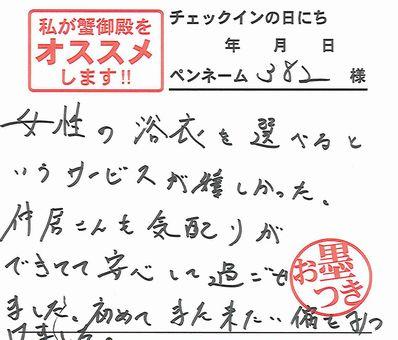 私が蟹御殿を
オススメ
します!!
チェックインの日にち
年 月 日
ペンネーム 382 様
女性の浴衣を選べると
いうサービスが嬉しかった。
仲居さんも気配りが
できてて安心して過ごせ
ました。初めてまた来たい宿をみつ
けました。
お墨つき